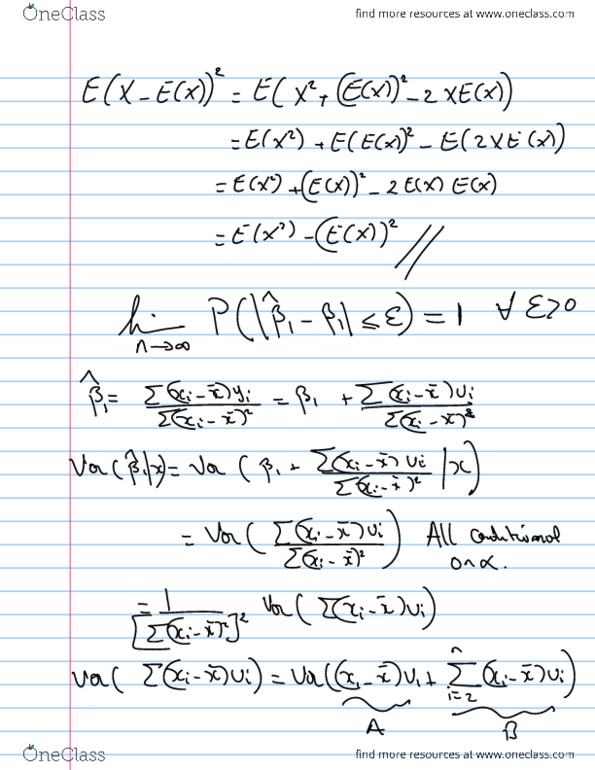 OneClass find more resources at www.oneclass.com
E(X - E(X))² = E( X² + (E(X))² - 2XE(X))
= E(X²) + E(E(X))² - E(2XE(X))
= E(X²) + (E(X))² - 2E(X) E(X)
= E(X²) - (E(X))² //
lim n→∞ P(|β̂₁ - β₁| ≤ ε) = 1 ∀ ε>0
β̂₁ = Σ(xᵢ - x̄)yᵢ / Σ(xᵢ - x̄)² = β₁ + Σ(xᵢ - x̄)uᵢ / Σ(xᵢ - x̄)²
Var(β̂₁|x) = Var( β₁ + Σ(xᵢ - x̄)uᵢ / Σ(xᵢ - x̄)² | x)
= Var( Σ(xᵢ - x̄)uᵢ / Σ(xᵢ - x̄)² ) All conditional
on x.
= 1 / [Σ(xᵢ - x̄)²]² Var( Σ(xᵢ - x̄)uᵢ)
Var( Σ(xᵢ - x̄)uᵢ) = Var((xᵢ - x̄)u₁ + Σⁿᵢ₌₂ (xᵢ - x̄)uᵢ)
A B
OneClass find more resources at www.oneclass.com